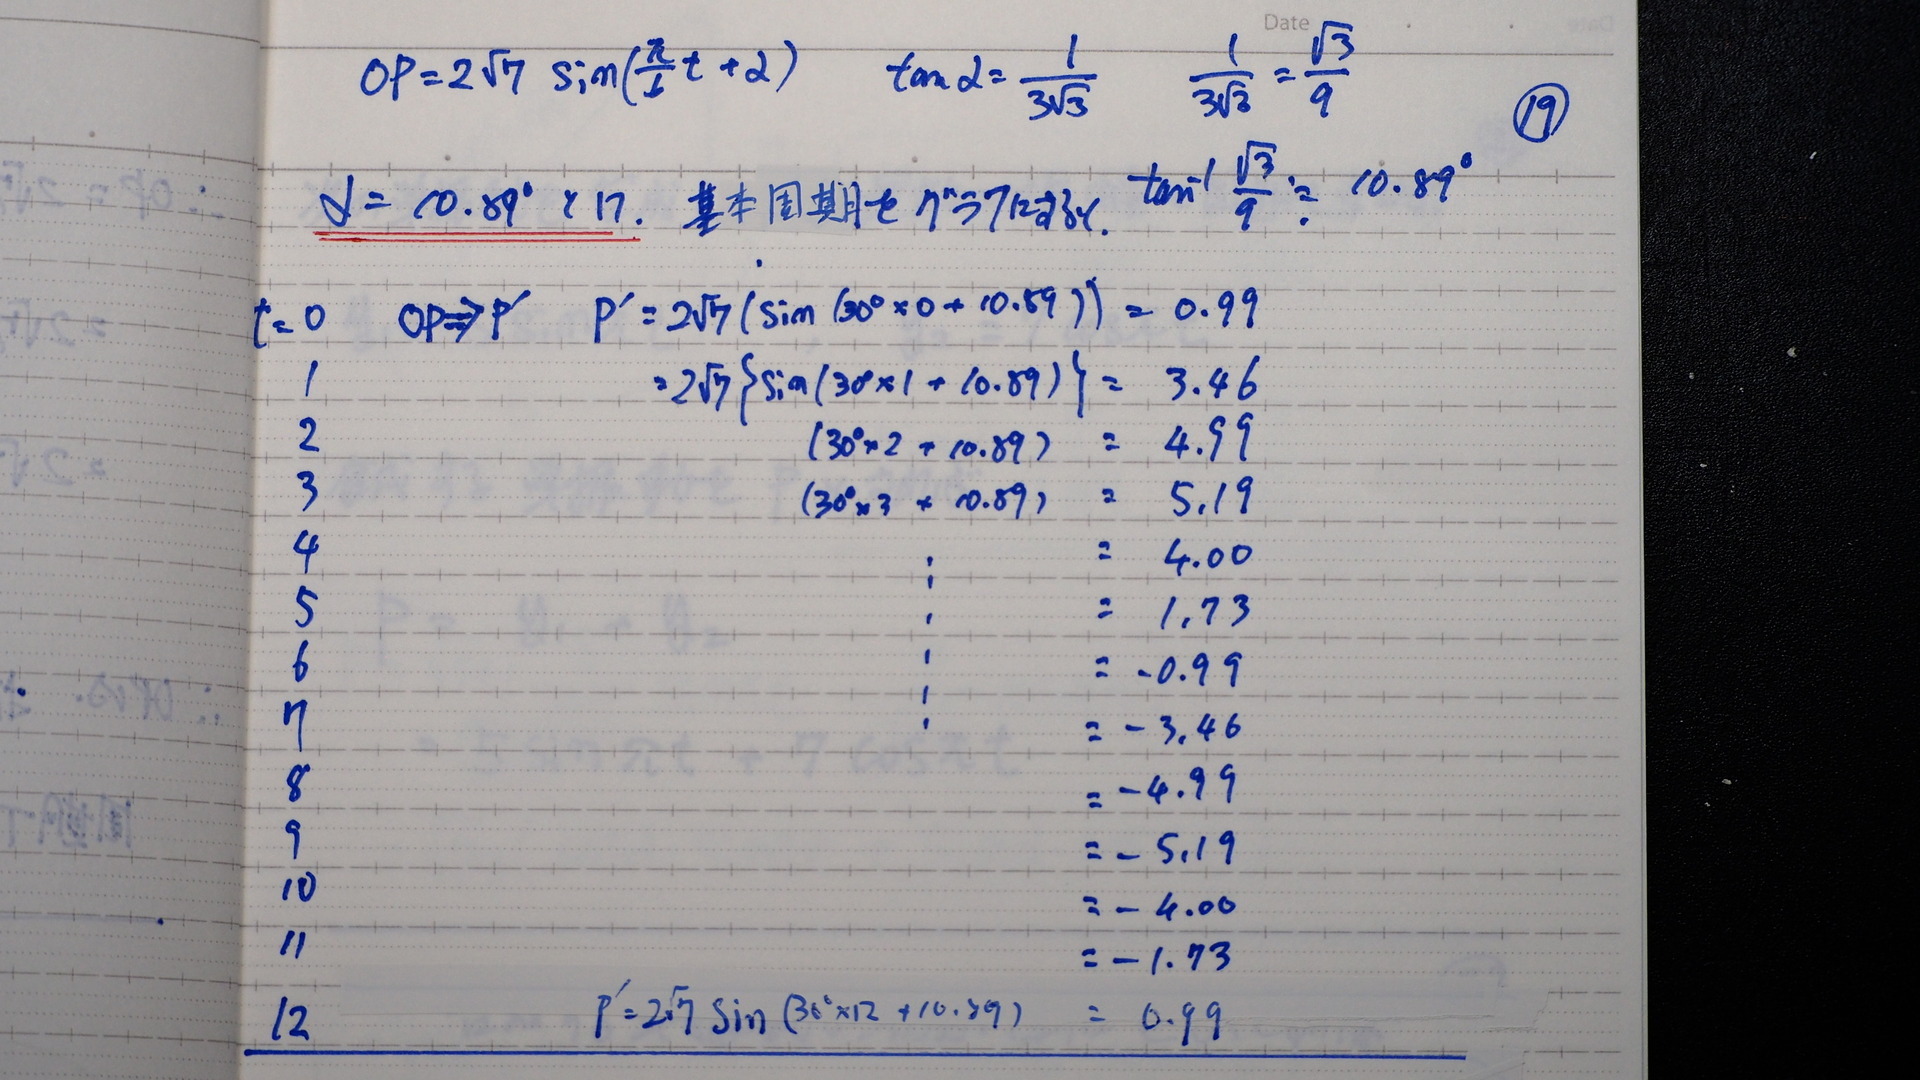 Date
OP = 2√7 sin(π/6 t + α)  tan α = 1/3√3  1/3√3 = √3/9
⑲
α = 10.89° とし、基本周期をグラフにすると、 tan⁻¹ √3/9 ≒ 10.89°
t = 0  OP ⇒ P′  P′ = 2√7 (sin (30° × 0 + 10.89)) = 0.99
1  = 2√7 {sin (30° × 1 + 10.89)} = 3.46
2  (30° × 2 + 10.89) = 4.99
3  (30° × 3 + 10.89) = 5.19
4  = 4.00
5  = 1.73
6  = -0.99
7  = -3.46
8  = -4.99
9  = -5.19
10  = -4.00
11  = -1.73
12  P′ = 2√7 sin (30° × 12 + 10.89) = 0.99